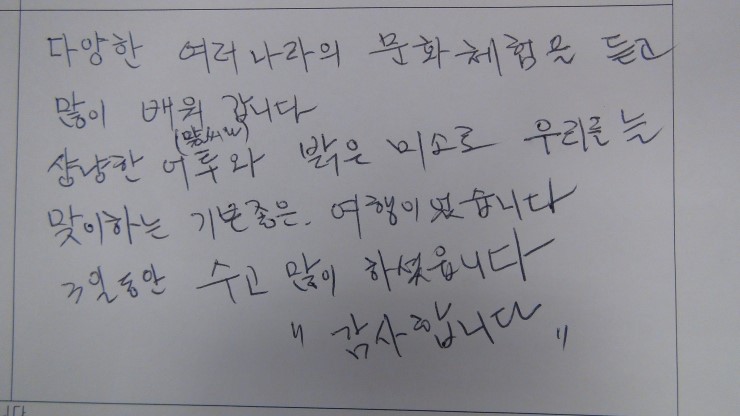 다양한 여러나라의 문화체험을 듣고
많이 배워 갑니다
(말씨와)
상냥한 어투와 밝은 미소로 우리를 늘
맞이하는 기분좋은. 여행이었습니다
3일동안 수고 많이 하셨읍니다
"감사합니다"
니다